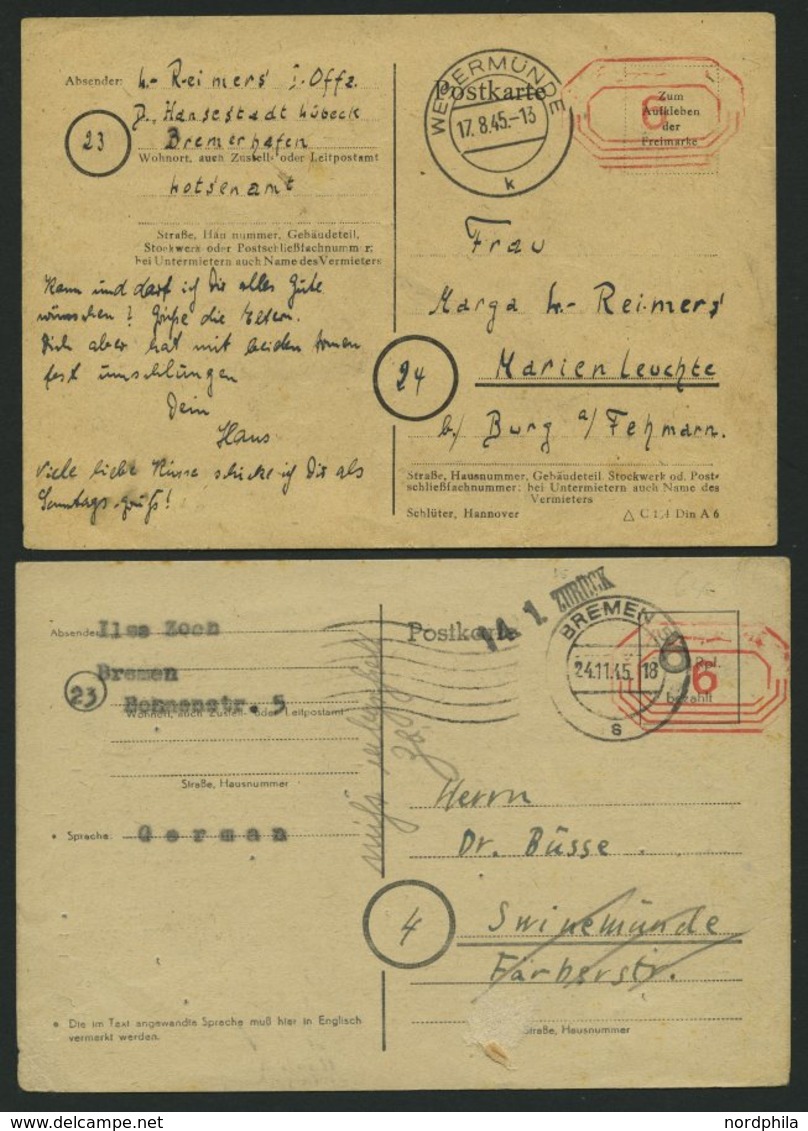 Absender: H. Reimers I. Offz.
D. Hansestadt Lübeck
23 Bremerhafen
Wohnort, auch Zustell- oder Leitpostamt
Lotsenamt
Straße, Hausnummer, Gebäudeteil,
Stockwerk oder Postschließfachnummer;
bei Untermietern auch Name des Vermieters
Kann und darf ich Dir alles Gute
wünschen? Grüße die Eltern.
Dich aber hat mit beiden Armen
fest umschlungen
Dein
Hans
Viele liebe Küsse schicke ich Dir als
Sonntags-Gruß!
Postkarte
WESERMÜNDE
17.8.45.-13
k
6
Zum
Aufkleben
der
Freimarke
Frau
Marga H. Reimers
24 Marienleuchte
b./ Burg a/ Fehmarn.
Straße, Hausnummer, Gebäudeteil, Stockwerk od. Post-
schließfachnummer; bei Untermietern auch Name des
Vermieters
Schlüter, Hannover
C 154 Din A 6
Absender Ilse Zoch
Bremen
23 Bohnenstr. 5
Wohnort, auch Zustell- oder Leitpostamt
Straße, Hausnummer
• Sprache: German
• Die im Text angewandte Sprache muß hier in Englisch
vermerkt werden.
Postkarte
14. 1 ZURÜCK
BREMEN
24.11.45. 18
s
6 Rpf.
bezahlt
6
Herrn
Dr. Büsse
4 Swinemünde
Färberstr.
Straße, Hausnummer
nordphila.com